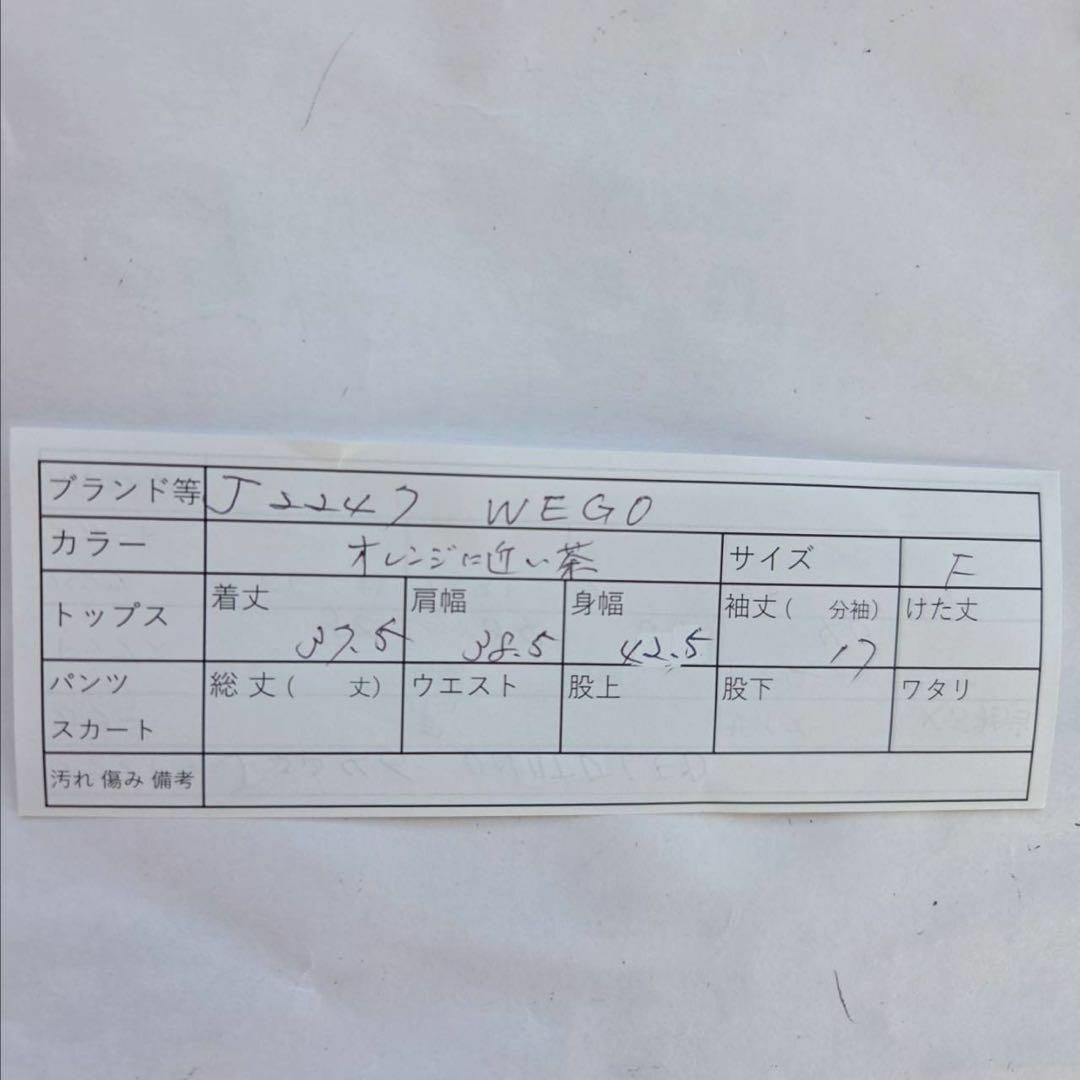 ブランド等 J2247 WEGO
カラー オレンジに近い茶 サイズ F
トップス 着丈 37.5 肩幅 38.5 身幅 42.5 袖丈( 分袖) 17 けた丈
パンツ スカート 総丈( 丈) ウエスト 股上 股下 ワタリ
汚れ 傷み 備考